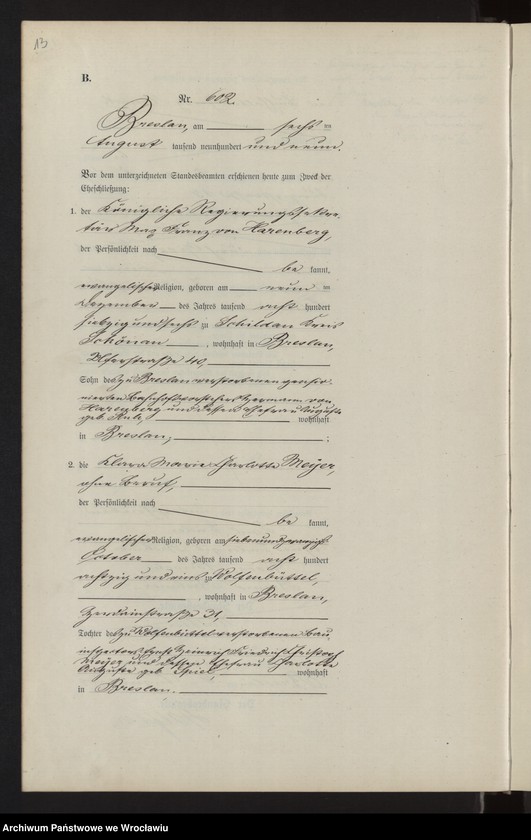 13
B.
Nr. 602.
Breslau, am sechs ten
August tausend neunhundert und neun.
Vor dem unterzeichneten Standesbeamten erschienen heute zum Zweck der
Eheschließung:
1. der Königliche Regierungssekre-
tär Max Franz von Harenberg,
der Persönlichkeit nach
be kannt,
evangelischer Religion, geboren am neun ten
Dezember des Jahres tausend acht hundert
siebzig und sechs zu Schildau Kreis
Schönau, wohnhaft in Breslau,
Uferstraße 40,
Sohn des zu Breslau verstorbenen pensio-
nierten Bahnhofsvorstehers Hermann von
Harenberg und dessen Ehefrau Auguste
geb. wohnhaft
in Breslau;
2. die Klara Marie Charlotte Meyer,
ohne Beruf,
der Persönlichkeit nach
be kannt,
evangelischer Religion, geboren am siebenundzwanzigsten
October des Jahres tausend acht hundert
achtzig und eins zu Wolfenbüttel,
, wohnhaft in Breslau,
straße 31,
Tochter des zu Wolfenbüttel verstorbenen Bau-
inspectors Ernst Heinrich Friedrich Christof
Meyer und dessen Ehefrau Charlotte
Auguste geb. Spiel, wohnhaft
in Breslau.
Archiwum Państwowe we Wrocławiu